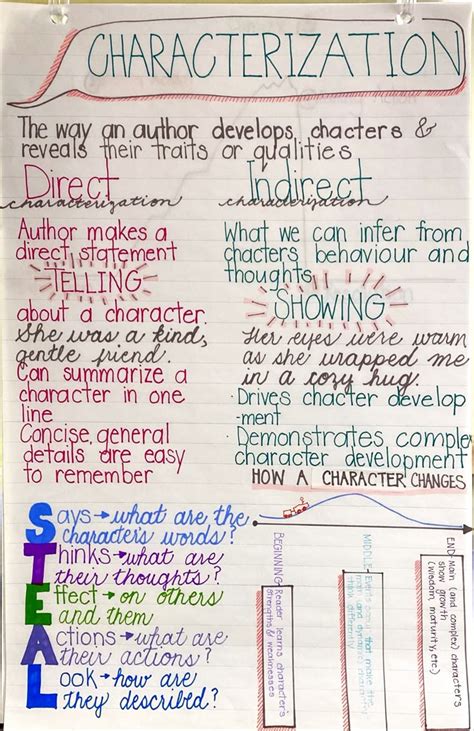 CHARACTERIZATION
The way an author develops, chacters &
reveals their traits or qualities
Direct
characterization
Author makes a
direct statement
TELLING
about a character.
She was a kind,
gentle friend.
Can summarize a
character in one
line
Concise, general
details are easy
to remember
Indirect
characterization
What we can infer from
chacters behaviour and
thoughts
SHOWING
Her eyes were warm
as she wrapped me
in a cozy hug.
· Drives chacter develop
-ment
· Demonstrates comple
character development
HOW A CHARACTER CHANGES
Says→what are the
character's words?
Thinks→what are
their thoughts?
Effect→on others
and them
Actions→what are
their actions?
Look→how are
they described?
BEGINNING: Reader learns character's
strengths & weaknesses
MIDDLE: Events occur that make the
main and dynamic character
think differently
END: Main (and complex) characters
show growth
(wisdom, maturity, etc.)